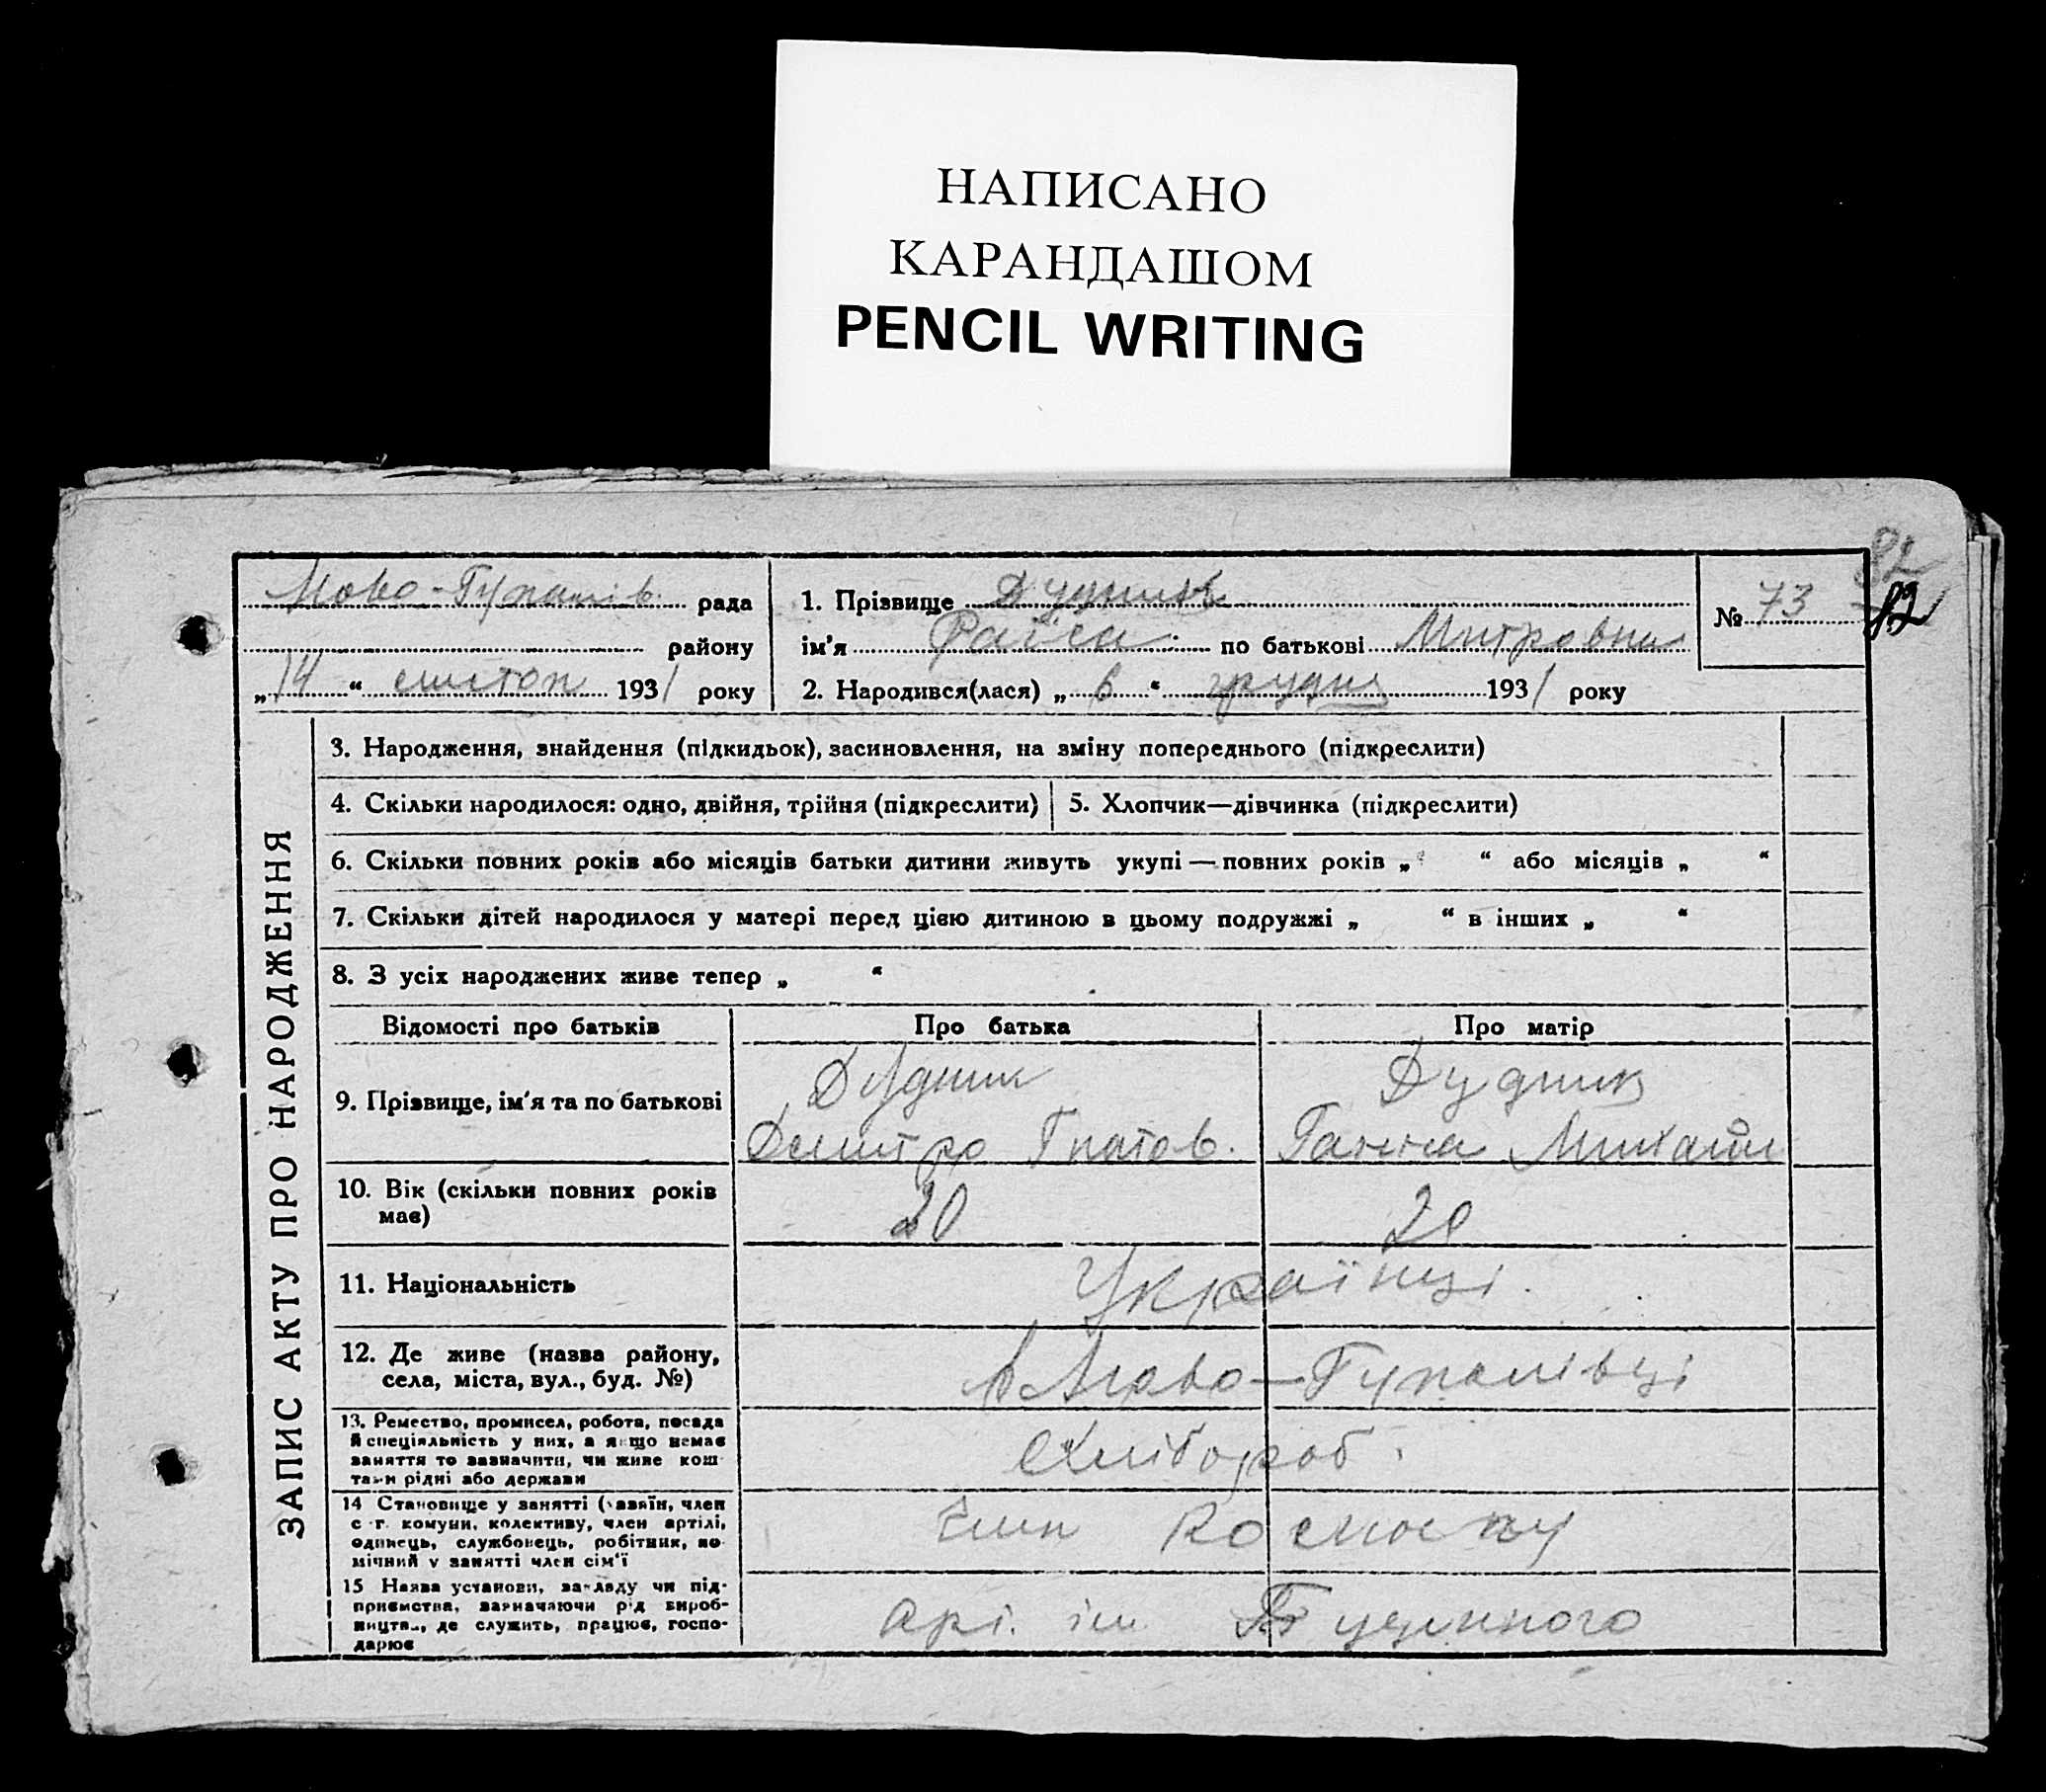 НАПИСАНО
КАРАНДАШОМ
PENCIL WRITING
82
82
Ново-Гупалів. рада
району
„14“ листоп 1931 року
1. Прізвище Дудник
ім'я Раїса по батькові Митровна
2. Народився(лася) „6“ грудня 1931 року
№ 73
ЗАПИС АКТУ ПРО НАРОДЖЕННЯ
3. Народження, знайдення (підкидьок), засиновлення, на зміну попереднього (підкреслити)
4. Скільки народилося: одно, двійня, трійня (підкреслити) 5. Хлопчик—дівчинка (підкреслити)
6. Скільки повних років або місяців батьки дитини живуть укупі — повних років „ “ або місяців „ “
7. Скільки дітей народилося у матері перед цією дитиною в цьому подружжі „ “ в інших „ “
8. З усіх народжених живе тепер „ “
Відомості про батьків Про батька Про матір
9. Прізвище, ім'я та по батькові
Дудник Дудник
Дмитро Гнатов. Ганна Михайл
10. Вік (скільки повних років
має)
20 20
11. Національність Українці.
12. Де живе (назва району,
села, міста, вул., буд. №)
Ново-Гупалівці
13. Ремество, промисел, робота, посада
й спеціяльність у них, а якщо немає
заняття то зазначити, чи живе кош
тами рідні або держави
Хлібороб.
14 Становище у занятті (хазяїн, член
с.-г. комуни, колективу, член артілі,
одинець, службовець, робітник, по-
мічний у занятті член сім'ї
Член
15 Назва установи, закладу чи під-
приємства, зазначаючи рід вироб-
ництва, де служить, працює, госпо-
дарює
арі. ім. Будьонного